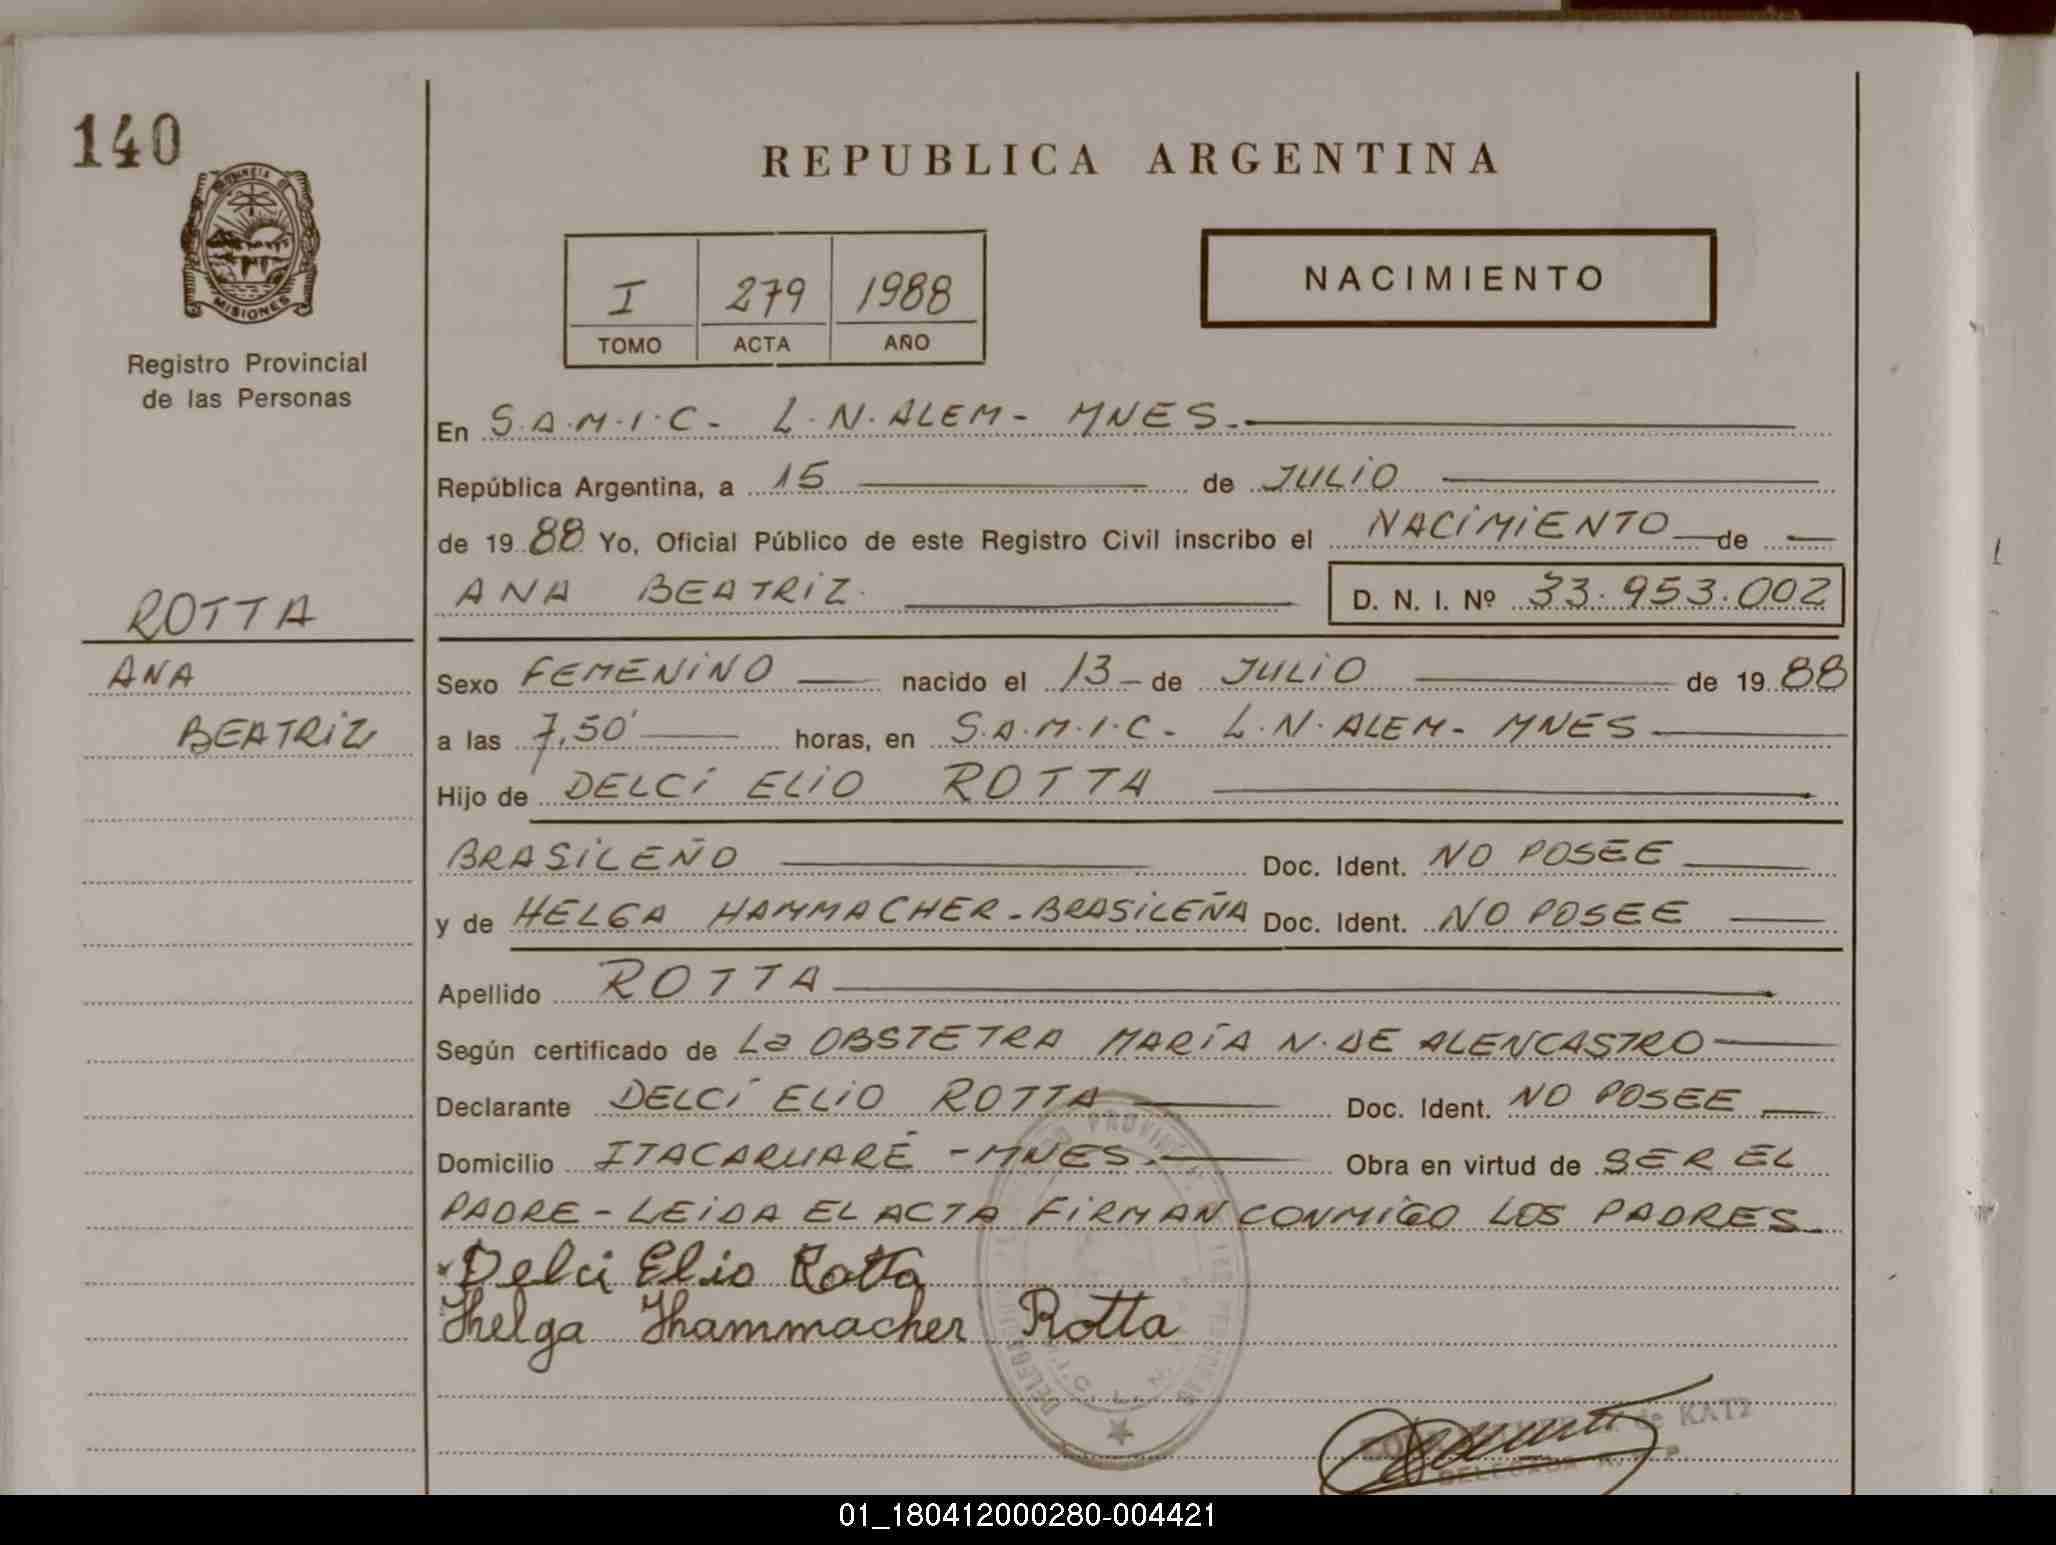 140
PROVINCIA DE
MISIONES
Registro Provincial
de las Personas
ROTTA
ANA
BEATRIZ
REPUBLICA ARGENTINA
I 279 1988
TOMO ACTA AÑO
NACIMIENTO
En S.A.M.I.C- L.N.ALEM- MNES.
República Argentina, a 15 de JULIO
de 1988 Yo, Oficial Público de este Registro Civil inscribo el NACIMIENTO de
ANA BEATRIZ. D. N. I. Nº 33.953.002
Sexo FEMENINO nacido el 13 de JULIO de 1988
a las 7,50' horas, en S.A.M.I.C- L.N.ALEM- MNES
Hijo de DELCI ELIO ROTTA
BRASILEÑO Doc. Ident. NO POSEE
y de HELGA HAMMACHER-BRASILEÑA Doc. Ident. NO POSEE
Apellido ROTTA
Según certificado de La OBSTETRA MARÍA N. DE ALENCASTRO
Declarante DELCÍ ELIO ROTTA Doc. Ident. NO POSEE
Domicilio ITACARUARÉ -MNES. Obra en virtud de SER EL
PADRE - LEIDA EL ACTA FIRMAN CONMIGO LOS PADRES
Delci Elio Rotta
Helga Hammacher Rotta
de KATZ
DELEGADA
01_180412000280-004421